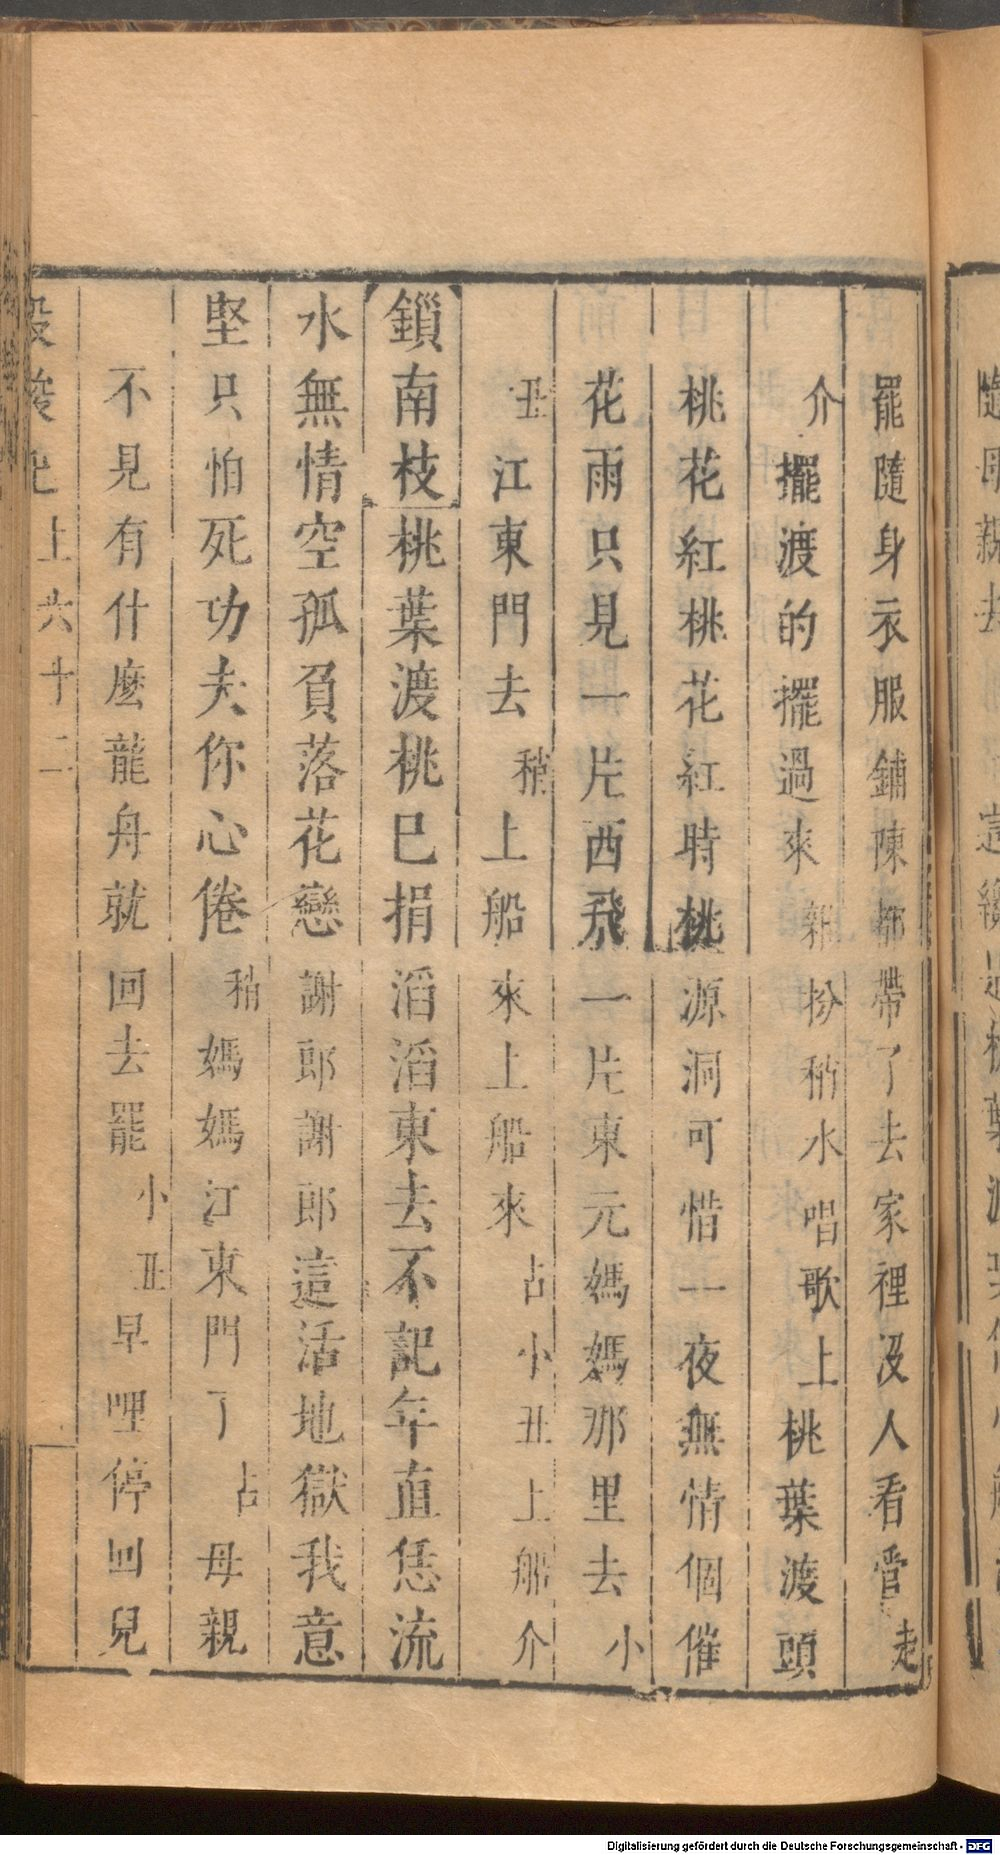 罷隨身衣服鋪陳都帶了去家裡沒人看管走
介擺渡的擺過來雜扮稍水唱歌上桃葉渡頭
桃花紅桃花紅時桃源洞可惜一夜無情個催
花雨只見一片西飛一片東元媽媽那里去小
丑江東門去稍上船來上船來占小丑上船介
鎖南枝桃葉渡桃已捐滔滔東去不記年直恁流
水無情空孤負落花戀謝郎謝郎這活地獄我意
堅只怕死功夫你心倦稍媽媽江東門了占母親
不見有什麼龍舟就回去罷小丑早哩停回兒
上六十二
Digitalisierung gefördert durch die Deutsche Forschungsgemeinschaft - DFG